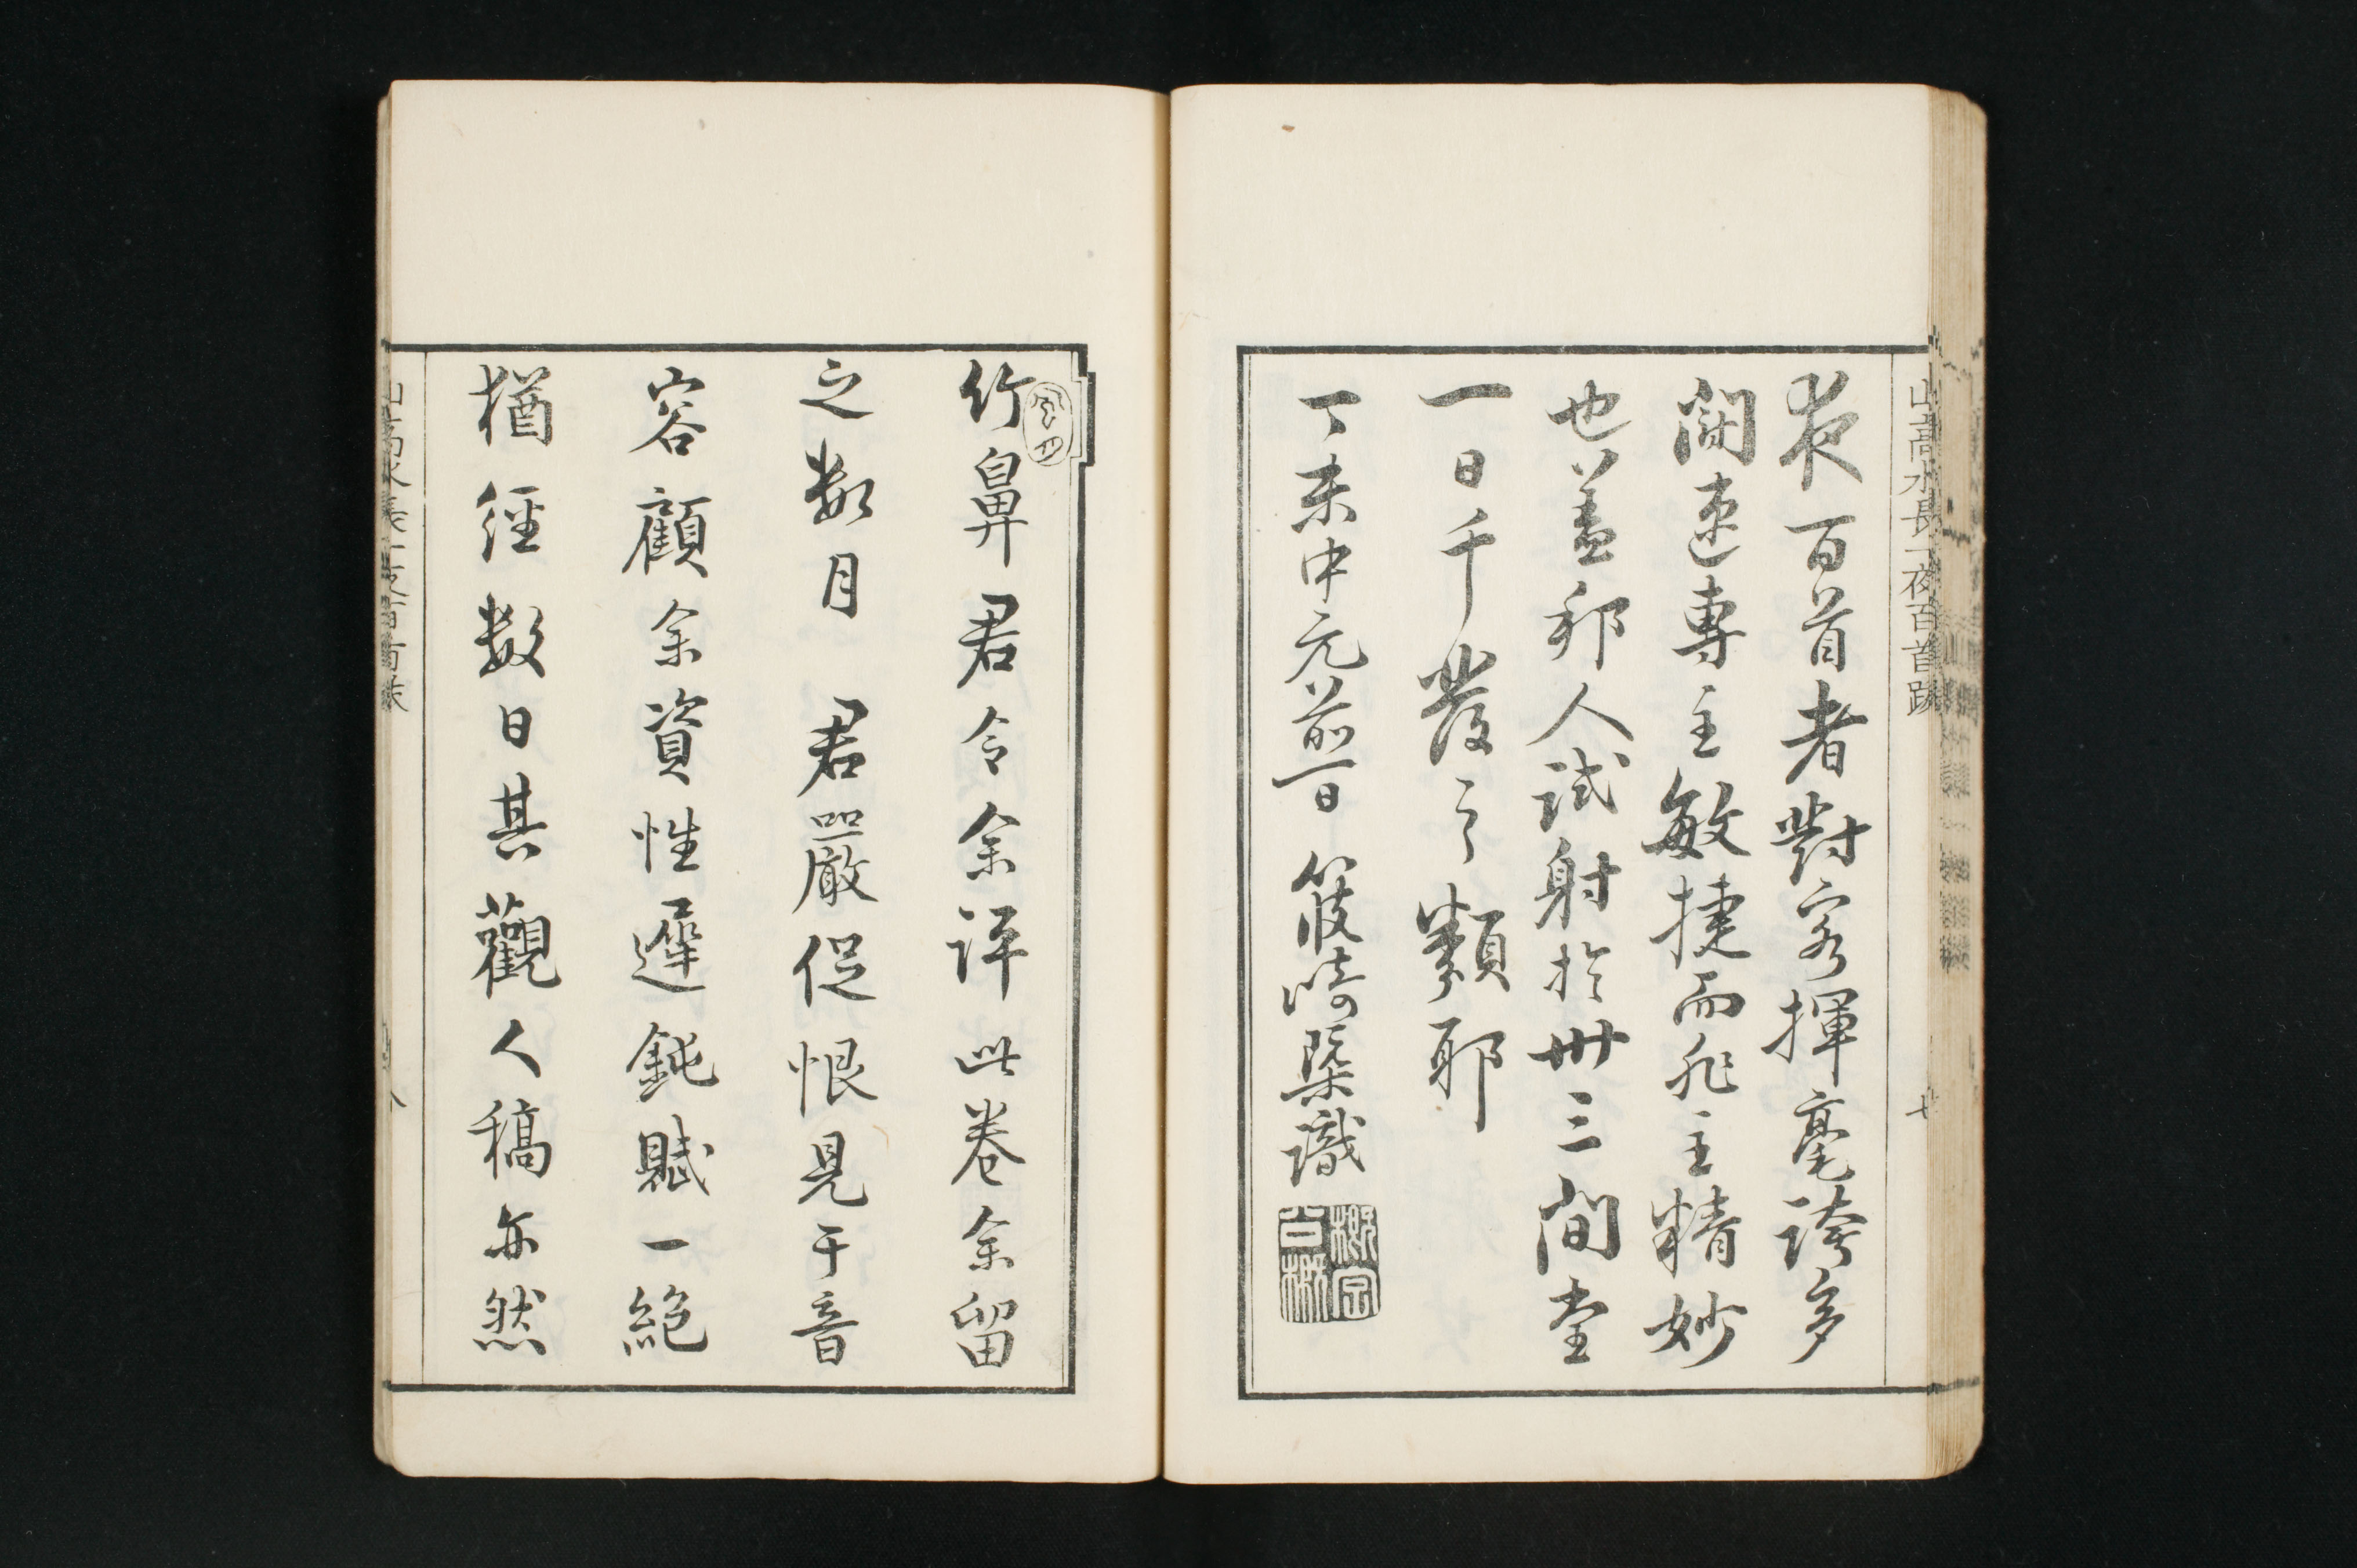 山高水長一夜百首跋
夜百首者對客揮毫誇多
鬪速專主敏捷而非主精妙
也蓋邦人試射於卅三間堂
一日千發之類耶
丁未中元前一日 筱崎槩識
竹鼻君令余評此卷余留
之數月 君嚴促恨見于音
容顧余資性遲鈍賦一絕
猶經數日其觀人稿亦然
山高水長一夜百首跋